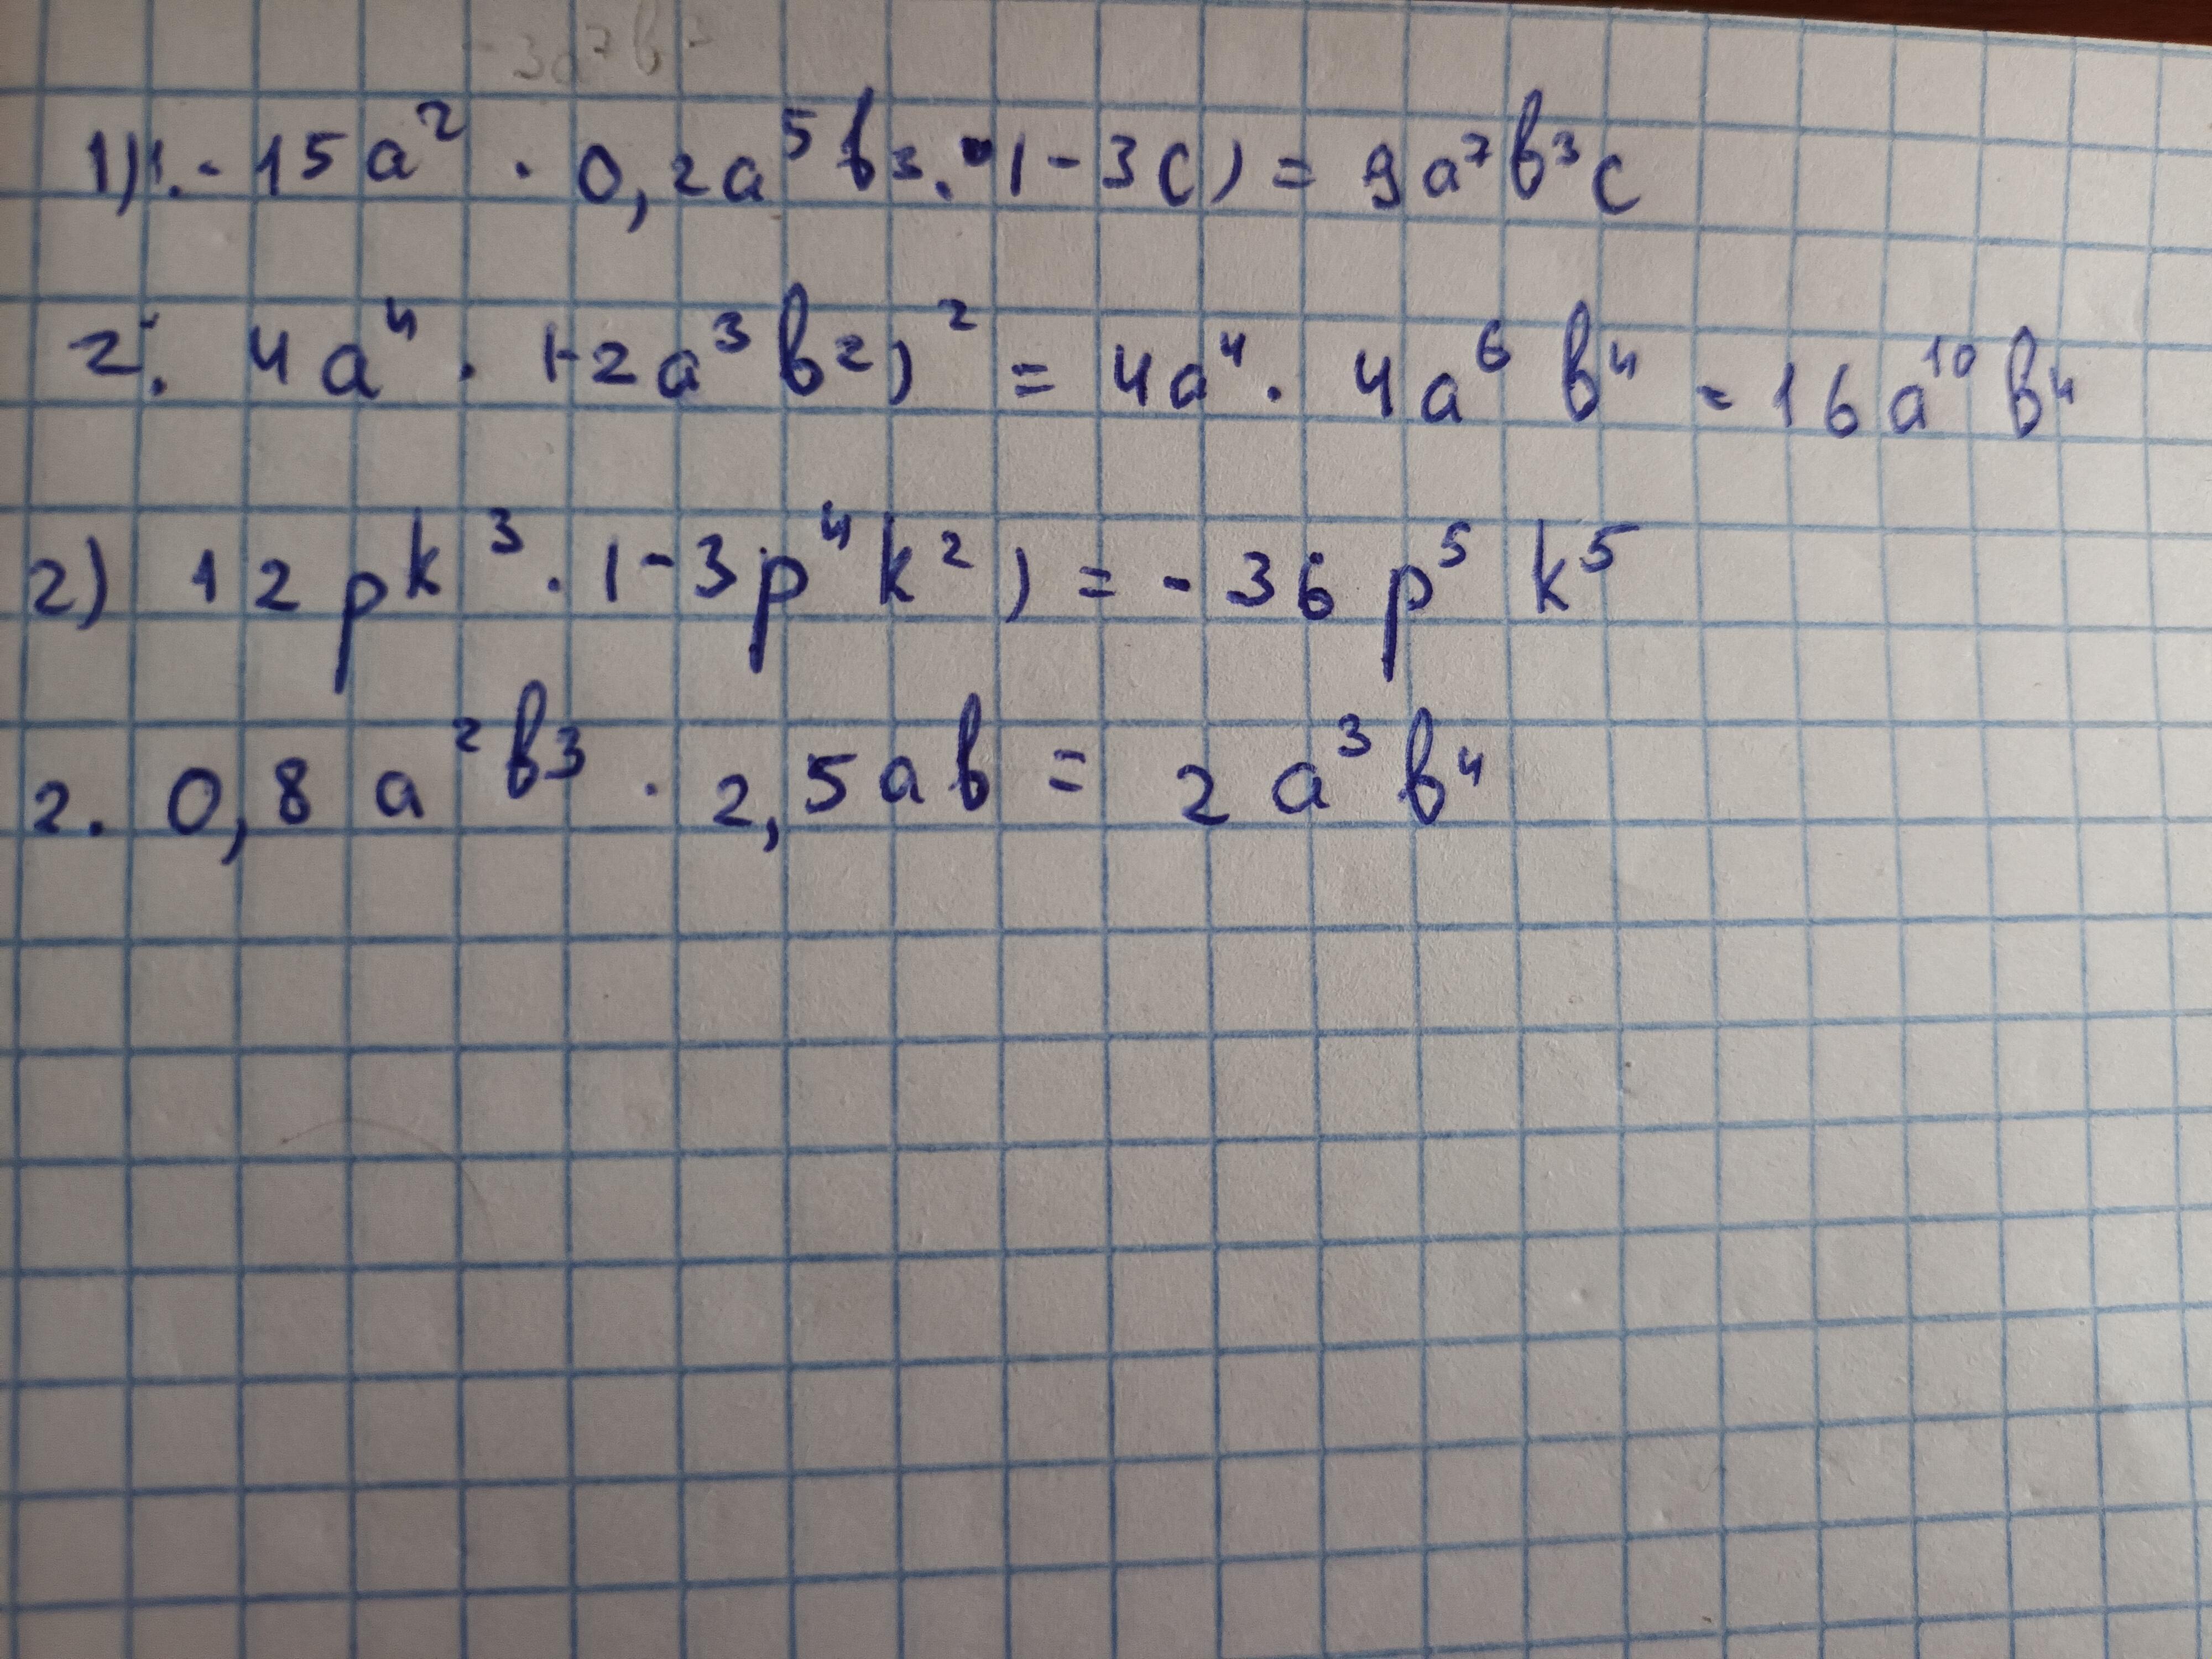 -3a⁷b
1) 1. -15a² · 0,2a⁵b³ · (-3c) = 9a⁷b³c
2. 4a⁴ · (-2a³b²)² = 4a⁴ · 4a⁶b⁴ = 16a¹⁰b⁴
2) 12pk³ · (-3p⁴k²) = -36p⁵k⁵
2. 0,8a²b³ · 2,5ab = 2a³b⁴